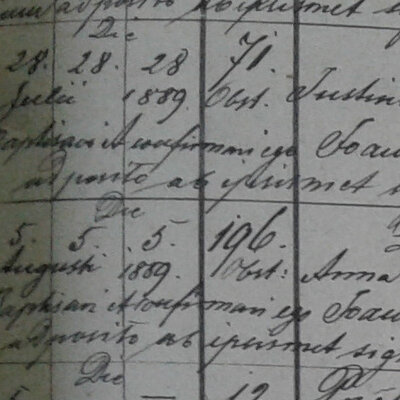 adposito ab ipsismet
Die
28. 28. 28 71.
Julii 1889. Obst. Justin
Baptisavi et confirmavi ego Joan
adposito ab ipsismet
Die
5. 5. 5. 196.
Augusti 1889. Obst: Anna
Baptisavi et confirmavi ego Joan
adposito ab ipsismet sig
Die
12